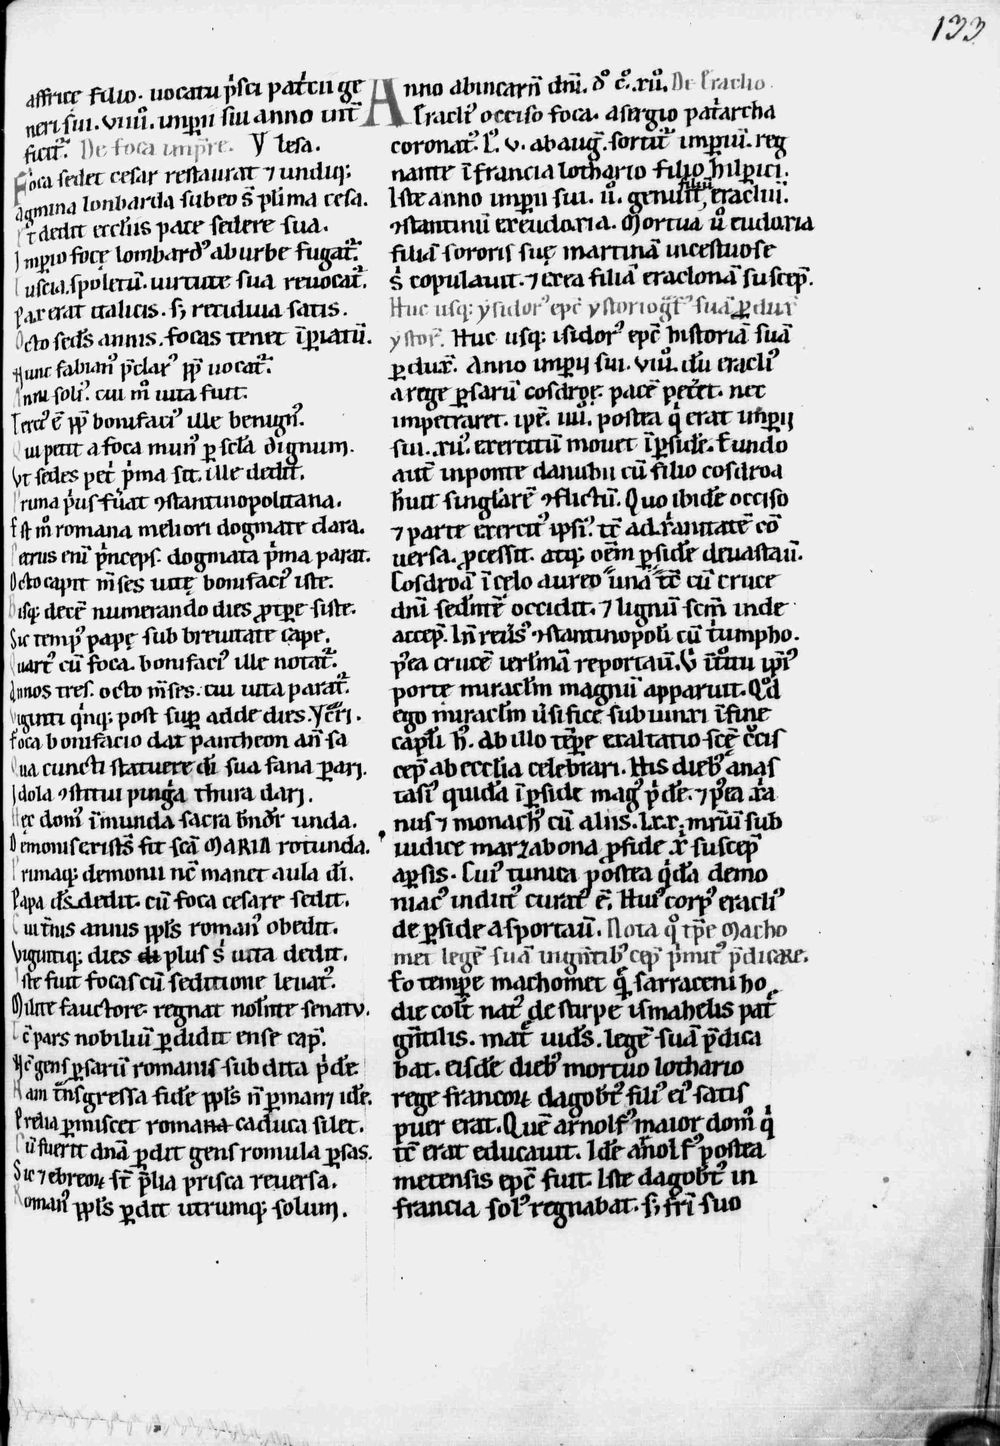 133
affricę filio. uocatu p̓sci pat͛cii ge
neri sui. uiiii. imp̲ii sui anno int̄
ficit᷑. De foca imp̄re. V̓ lesa.
Foca sedet cesar restaurat ⁊ undiq;
agmina lonbarda sub eo s̄ pl̓ima cesa.
P̓t̓ dedit eccl̓iis pace sedere sua.
Imp̲io focę lombardꝰ ab urbe fugat᷑.
Tuscia. spoletū. uirtute sua reuocat᷑.
Pax erat italicis. s; rediuiua satis.
Octo sed̓s annis. focas tenet īp̲iatū.
Hunc fabianꝰ p̄clarꝰ pp̄ uocat᷑.
Anni solıꝰ. cui m̊ uita fuit.
Tercꝰ ē pp̄ bonifaciꝰ ille benignꝰ.
Qui petit a foca munꝰ p̲ scl̄a dignum.
Vt sedes pet̓ p̓ma sit. ille dedit.
Prima p̓us fu̓at ꝯstantinopolitana.
Est m̊ romana meliori dogmate clara.
Petrus eni̅ p̓nceps. dogmata p̓ma parat.
Octo capit m̄ses uitę bonifaciꝰ iste.
Bisq; decē numerando dies ꝓtp̲e siste.
Sic tempꝰ papę sub breuitate cape.
Quartꝰ cū foca. bonifaciꝰ ille notat᷑.
Annos tres. octo m̄ses. cui uita parat᷑.
Viginti q̓nq; post sup̲ adde dies.
Foca bonifacio dat pantheon an̄ sa
Qua cuncti statuere di̅ sua fana parj.
Idola ꝯstitui pingᷓa thura darj.
Hęc domꝰ i̅munda sacra
Demonis crist̄s fit sc̄a MARIA rotunda.
Primaq; demonii nc̄ manet aula di̅.
Papa ds̄ dedit. cū foca cesare sedit.
Cui t̓nis annis pp̄ls romanꝰ obedit.
Vigintiq; dies di plus s̓ uita dedit.
Iste fuit focas cū seditione leuatꝰ.
Milite fauctore. regnat nolente senatu.
Tc̄ pars nobiliū p̲didit ense capꝰ.
Hc̄ gens p̲sarū romanis subdita p̓de.
Nam t̄nsgressa fide pp̄ls n̄ p̲manꝫ ide.
Prelia p̲miscet romana caduca silet.
Cū fuerit dn̄a p̲dit gens romula p̲sas.
Sic ⁊ ebreoꝝ st̄ p̄lia prisca reuersa.
Romanꝰ pp̄ls p̲dit utrumq; solum.
Anno ab incarn̄ dni̅. d̊ c̊. xiiͦ. De Eraclio.
Eraclıꝰ occiso foca. a sergio pat͛archa
coronatꝰ. Lꝰ. v. ab aug̓. sortit᷑ imp̲iū. reg
nante i̅ francia lothario filio hilp̲ici.
Iste anno imp̲ii sui. iiͦ. genuit filiū, eracliū.
ꝯstantinū ex eudoxia. Mortua ů eudoxia
filiā sororis suę martinā incestuose
s̓ copulauit. ⁊ ex ea filiā eraclonā suscep̄.
Huc usq; ysidorꝰ epc̄ ystoriog̓fꝰ suā p̲dux̓
ystor̓. Huc usq; isidorꝰ epc̄ historiā suā
p̲dux̓. Anno imp̲ii sui. viiiͦ. dū eraclıꝰ
a rege p̲sarū cosdroe. pacē pet̓et. nec
impetraret. ip̄e. iiii. postea q̓ erat imp̲ij
sui. xiiꝰ. exercitū mouet i̅ p̲side. Eundo
aut̄ in ponte danubii cū filio cosdroa
huit singl̓arē ꝯflictū. Quo ibide occiso
⁊ parte exercitꝰ ipsiꝰ. tc̄ ad x̓anitatē cō
uersa. ꝓcessit. atq; oēm p̲side deuastau̅.
Cosdroā i̅ celo aureo una tc̄ cū cruce
dni̅ sedn̄tē occidit. ⁊ lignū scm̄ inde
accep̄. In reůsꝰ ꝯstantinopoli cū t͛umpho.
p̓ea crucē ierl̓mā reportau̅. V̓ i̅troitu ip̄iꝰ
porte miracl̓m magnū apparuit. Qd̊
ego miracl̓m ůsifice subiunxi i̅ fine
capl̓i hꝰ. Ab illo tp̲e exaltatio sc̄ę c̊cis
cep̄ ab ecclia celebrari. His diebꝰ anas
tasiꝰ quida i̅ p̲side magꝰ p̓de. ⁊ p̓ea x̓a
nus ⁊ monachꝰ cū aliis. lxx. mr̄iū sub
iudice marzabona ꝓ fide x̓ suscep̄
a p̲sis. Cuiꝰ tunica postea q̓da demo
niacꝰ indutꝰ curatꝰ ē. Huiꝰ corpꝰ eraclıꝰ
de p̲side asportau̅. Nota q̊ tp̲e Macho
met legē suā ui gn̄tibꝰ cep̄ p̓mitꝰ p̄dicare.
Eo tempe machomet q̄ sarraceni ho
die col̓t natꝰ de stirpe ismahelis pat͛
gn̄tilis. mat͛ iuds̄. legē suā p̄dica
bat. eisde diebꝰ mortuo lothario
rege francoꝝ dagobt̓ꝰ filiꝰ eiꝰ satis
puer erat. Quē arnolfꝰ maior domꝰ q̓
tc̄ erat educauit. Ide arnolfꝰ postea
metensis epc̄ fuit. Iste dagobt̓ꝰ in
francia solꝰ regnabat. s; fr̄i suo